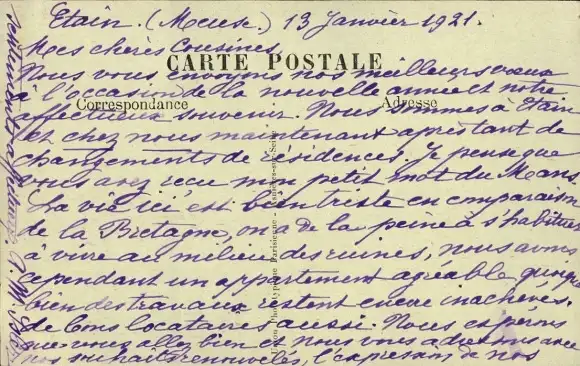 Etain. (Meuse.) 13 Janvier 1921.
Mes chères Cousines,
CARTE POSTALE
Nous vous envoyons nos meilleurs vœux
à l'occasion de la nouvelle année et notre
Correspondance
Adresse
affectueux souvenir. Nous sommes à Etain
et chez nous maintenant après tant de
changements de résidences. Je pense que
vous avez reçu mon petit mot du Mans
La vie ici est bien triste en comparaison
de la Bretagne, on a de la peine à s'habituer
à vivre au milieu des ruines, nous avons
cependant un appartement agréable quoique
bien des travaux restent encore inachevés.
de bons locataires aussi. Nous espérons
que vous allez bien et nous vous adressons avec
nos souhaits renouvelés, l'expression de nos